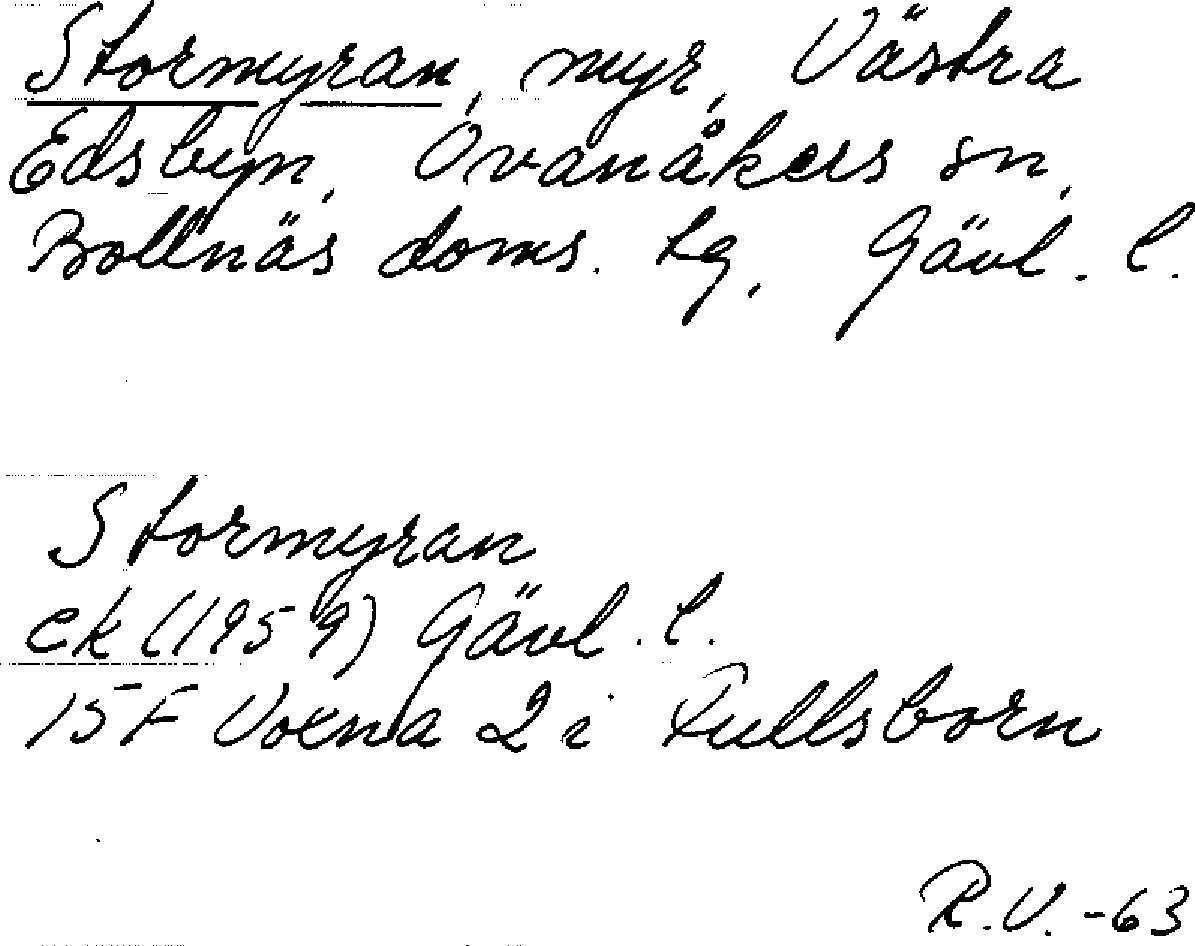 Stormyran, myr, Västra
Edsbyn, Ovanåkers sn,
Bollnäs doms. tg, Gävl. l.
Stormyran
ek (1959) Gävl. l.
15F Voxna 2 i Pullsborn
R.V. -63